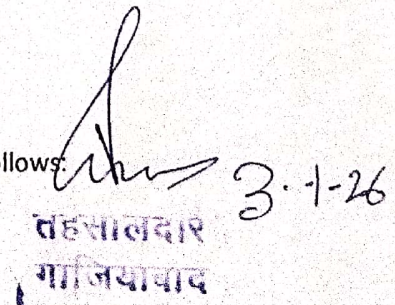 ollows:
3.1-26
तहसीलदार
गाजियाबाद